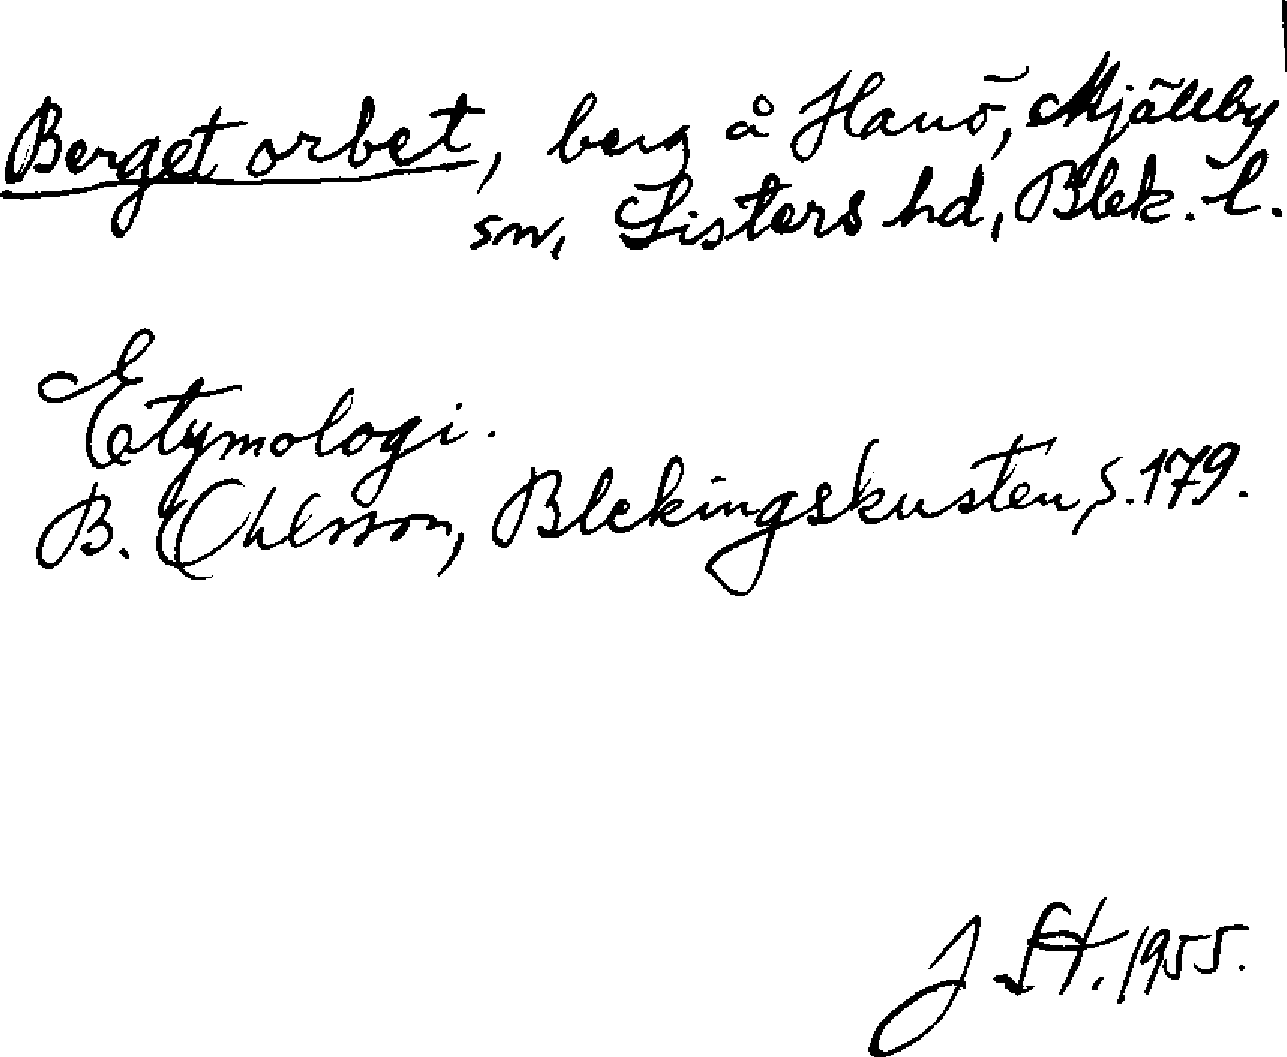 Berget orbet, berg å Hanö, Mjällby
sn, Listers hd, Blek. l.
Etymologi.
B. Ohlsson, Blekingskusten, s. 179.
J. 1955.